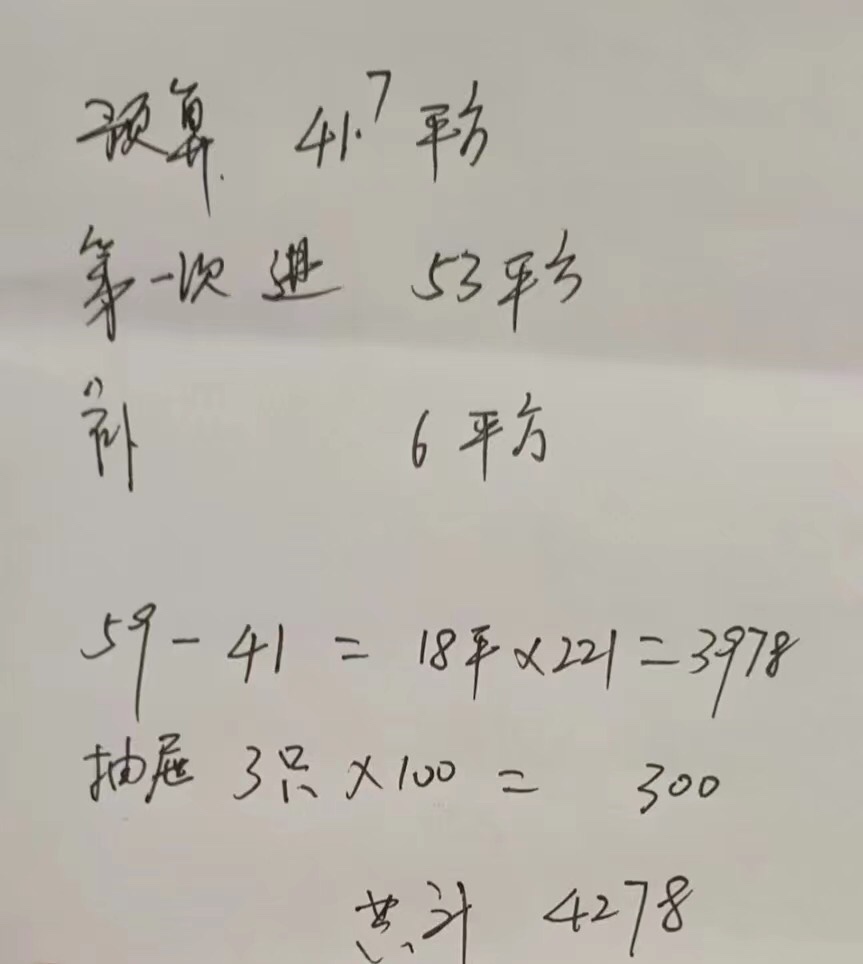 预算 41.7 平方
第一次进 53平方
补 6 平方
59-41 = 18平×221=3978
抽屉 3只×100 = 300
共计 4278